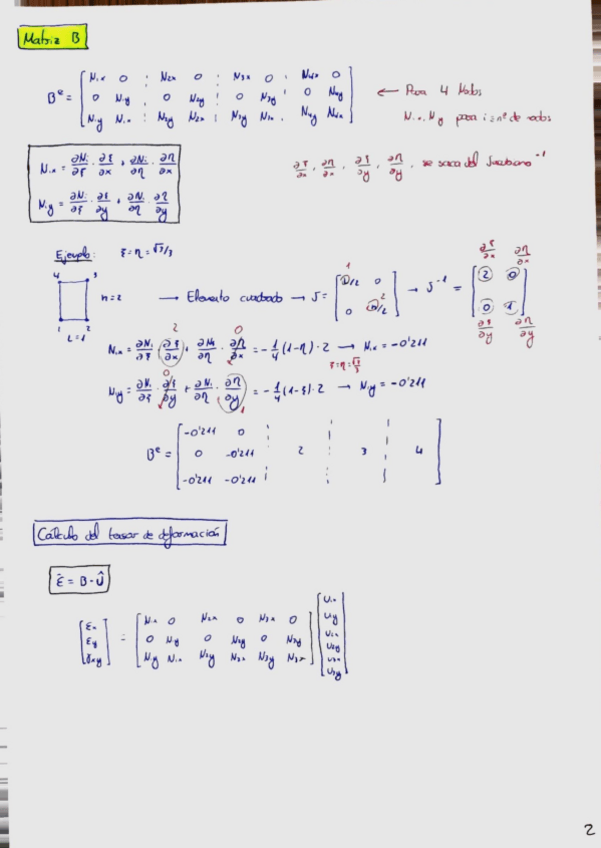 Matriz B
B^e = [ N1x 0 ¦ N2x 0 ¦ N3x 0 ¦ N4x 0
0 N1y ¦ 0 N2y ¦ 0 N3y ¦ 0 N4y
N1y N1x ¦ N2y N2x ¦ N3y N3x ¦ N4y N4x ]
← Para 4 Nodos
Nix, Niy para i = nº de nodos
Nix = ∂Ni/∂ξ · ∂ξ/∂x + ∂Ni/∂η · ∂η/∂x
Niy = ∂Ni/∂ξ · ∂ξ/∂y + ∂Ni/∂η · ∂η/∂y
∂ξ/∂x, ∂η/∂x, ∂ξ/∂y, ∂η/∂y, se saca del Jacobiano^-1
Ejemplo: ξ = η = √3/3
4 3
h = 2
1 2
L = 1
→ Elemento cuadrado → J = [ L/2 0
0 h/2 ]
→ J^-1 = [ 2 0
0 1 ]
∂ξ/∂x ∂η/∂x
∂ξ/∂y ∂η/∂y
N1x = ∂N1/∂ξ · ∂ξ/∂x + ∂N1/∂η · ∂η/∂x = -1/4 (1-η) · 2 → N1x = -0'211
ξ=η=√3/3
N1y = ∂N1/∂ξ · ∂ξ/∂y + ∂N1/∂η · ∂η/∂y = -1/4 (1-ξ) · 2 → N1y = -0'211
B^e = [ -0'211 0 ¦
0 -0'211 ¦ 2 ¦ 3 ¦ 4
-0'211 -0'211 ¦ ]
Cálculo del tensor de deformación
ε̄ = B · Û
[ εx
εy
γxy ] = [ N1x 0 N2x 0 N3x 0
0 N1y 0 N2y 0 N3y
N1y N1x N2y N2x N3y N3x ]
[ U1x
U1y
U2x
U2y
U3x
U3y ]
2